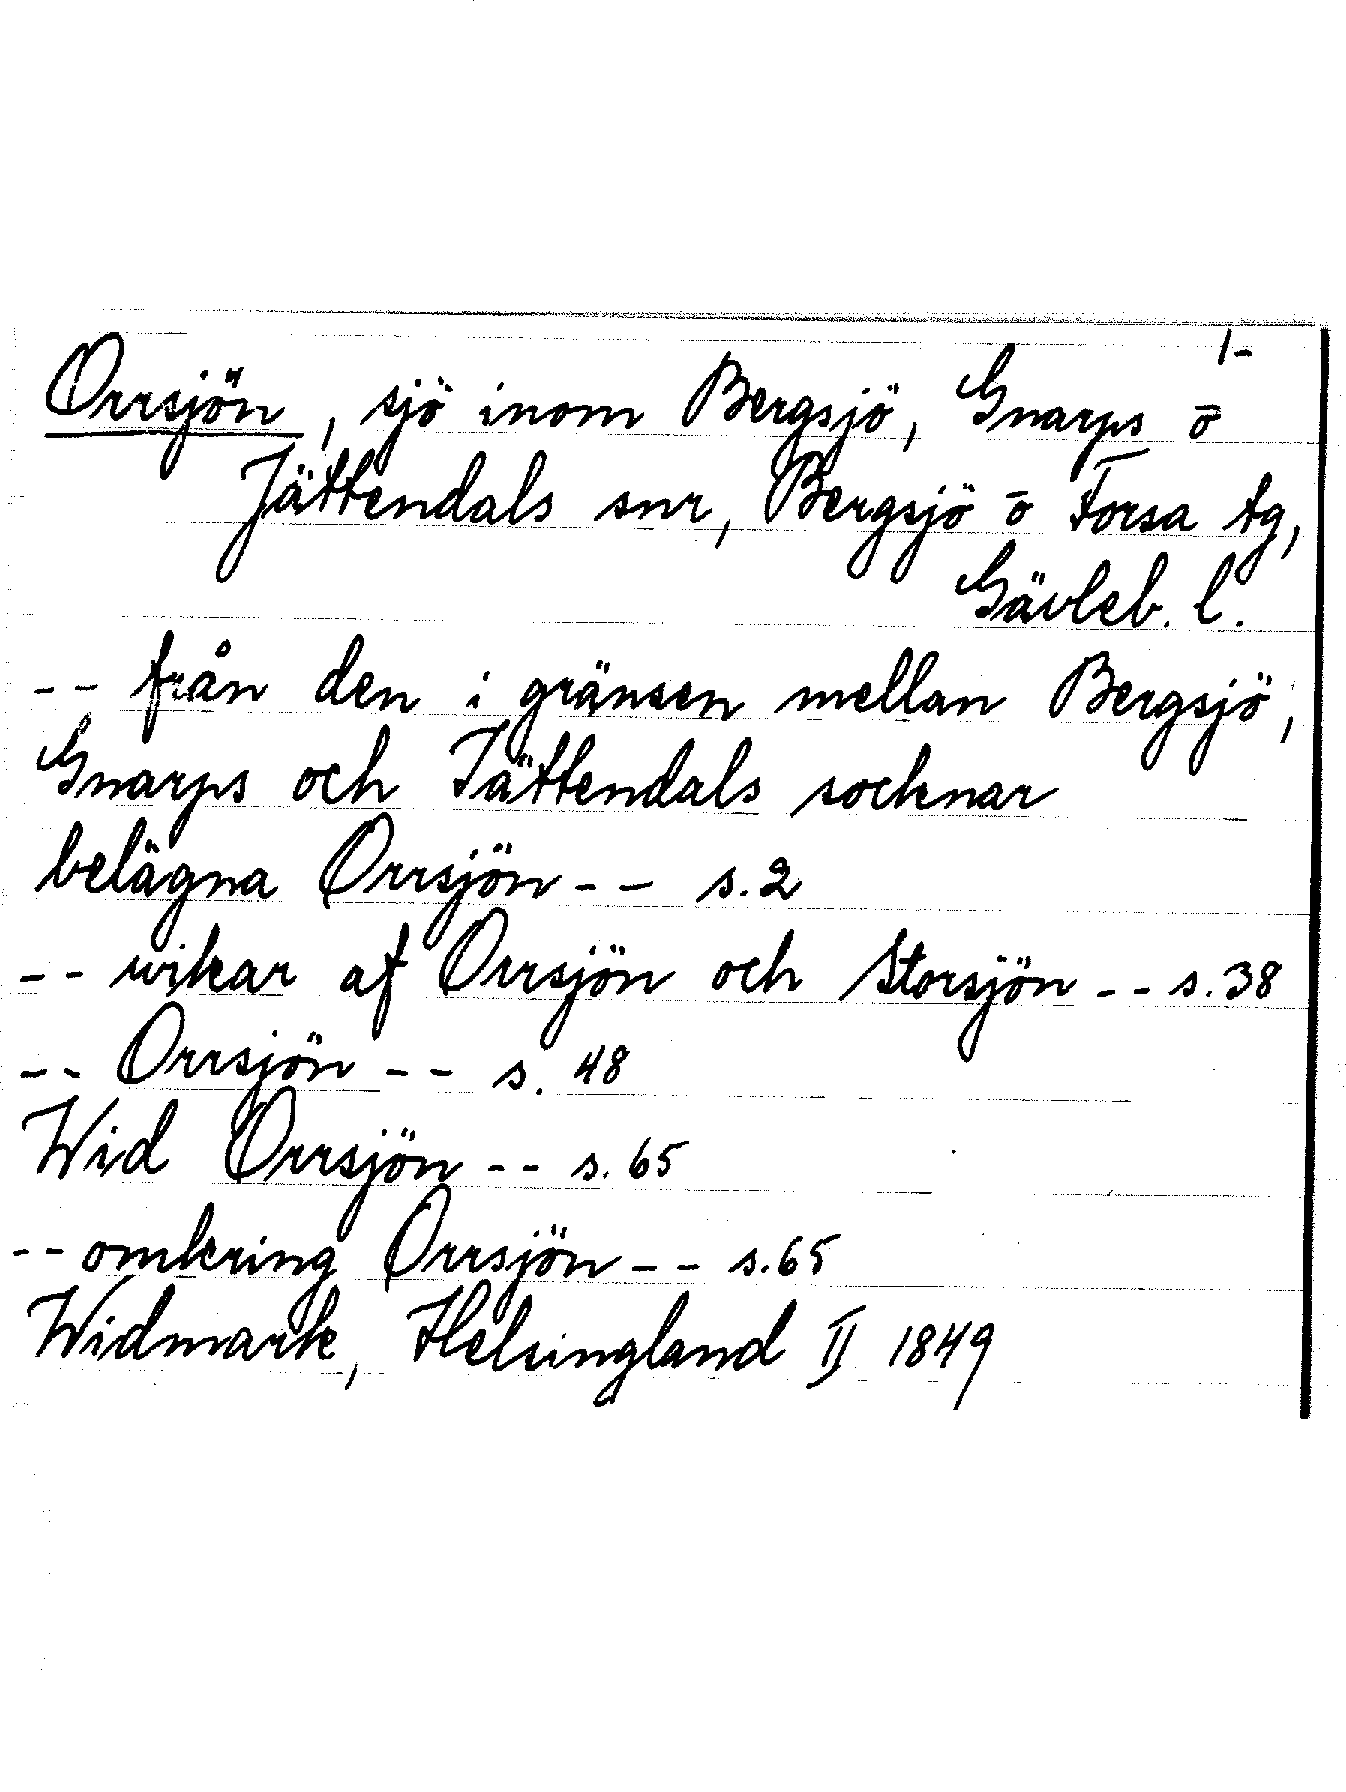 1-
Orrsjön, sjö inom Bergsjö, Gnarps o
Jättendals snr, Bergsjö o Forsa tg,
Gävleb. l.
-- från den i gränsen mellan Bergsjö,
Gnarps och Jättendals socknar
belägna Orrsjön -- s. 2
-- wikar af Orrsjön och Storsjön -- s. 38
-- Orrsjön -- s. 48
Wid Orrsjön -- s. 65
-- omkring Orrsjön -- s. 65
Widmark, Helsingland II 1849